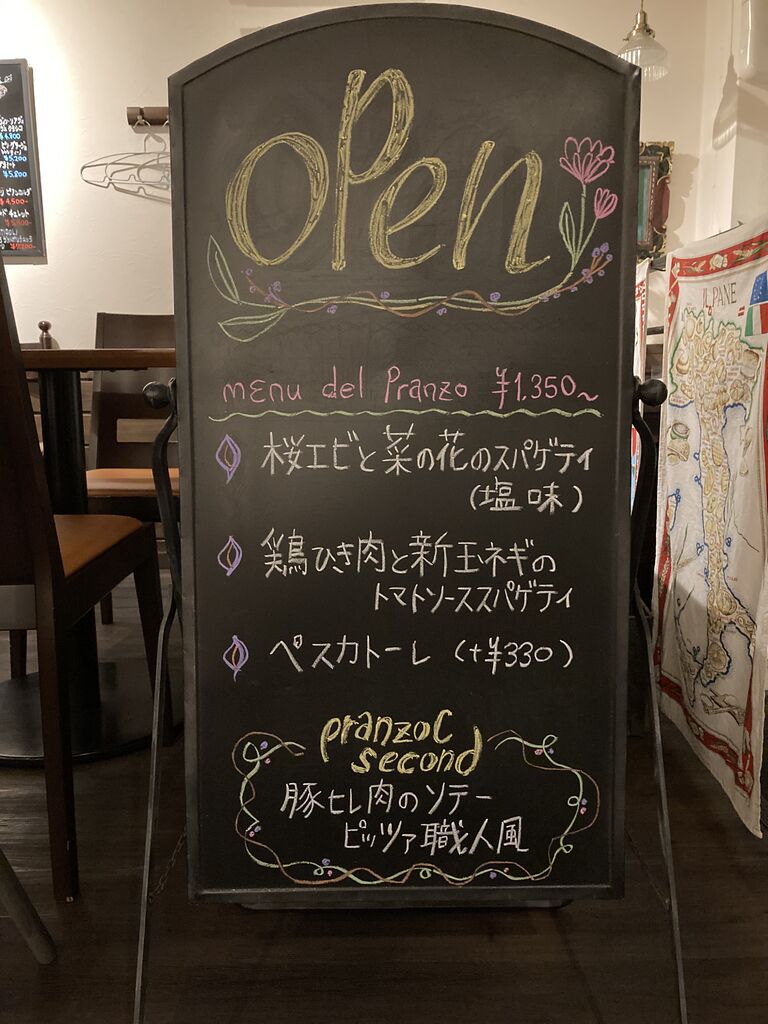 open
menu del Pranzo ¥1.350~
桜エビと菜の花のスパゲティ
(塩味)
鶏ひき肉と新玉ネギの
トマトソーススパゲティ
ペスカトーレ (+¥330)
pranzoC
second
豚ヒレ肉のソテー
ピッツァ職人風
PANE
¥4,800
¥5,200
¥5,800
¥4,500-